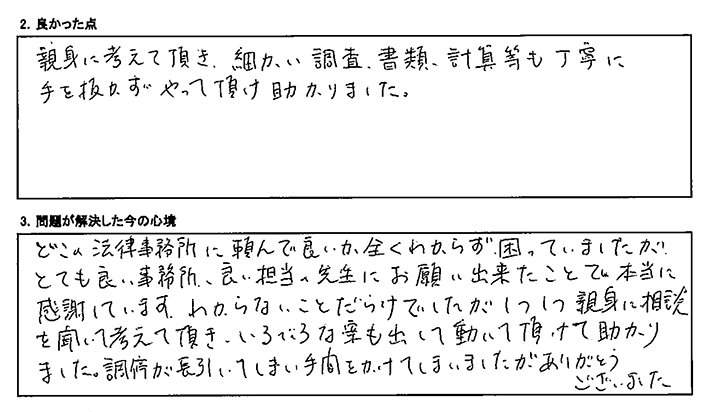 2. 良かった点
親身に考えて頂き、細かい調査、書類、計算等も丁寧に
手を抜かずやって頂け助かりました。
3. 問題が解決した今の心境
どこの法律事務所に頼んで良いか全くわからず困っていましたが、
とても良い事務所、良い担当の先生にお願い出来たことで本当に
感謝しています。わからないことだらけでしたが1つ1つ親身に相談
を聞いて考えて頂き、いろいろな案も出して動いて頂けて助かり
ました。調停が長引いてしまい手間をかけてしまいましたがありがとう
ございました